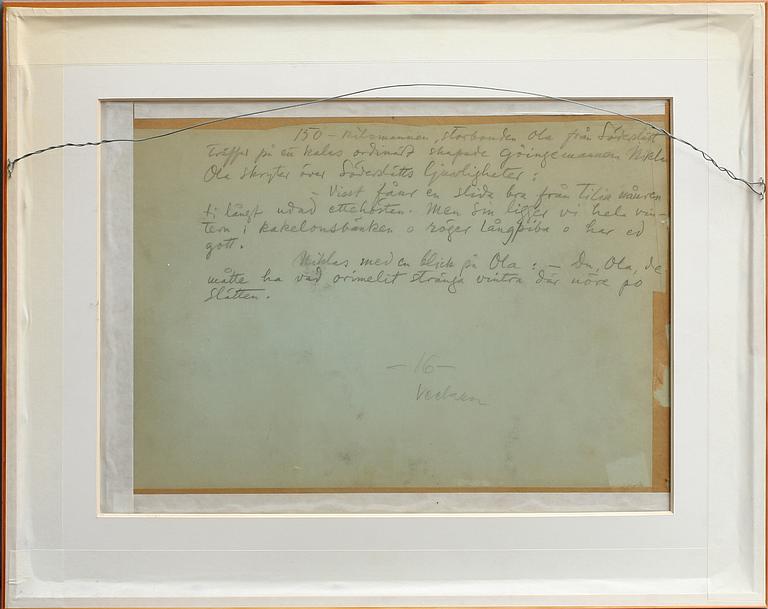 150 – kilosmannen, storbonden Ola från Söderslätt
träffar på en kalas ordinärt skapade göingemannen Nikla
Ola skryter över Söderslätts ljuvligheter:
– Visst får en slida bra från
ti långt udad ettehösten. Men sin ligger vi hela vin-
tern i kakelonsbänken o röger långpiba o har ed
gott.
Niklas med en blick på Ola: – Du, Ola, de
måtte ha vad orimelit stränga vintra där nöre po
Slätten.
– 16 –
Veckan